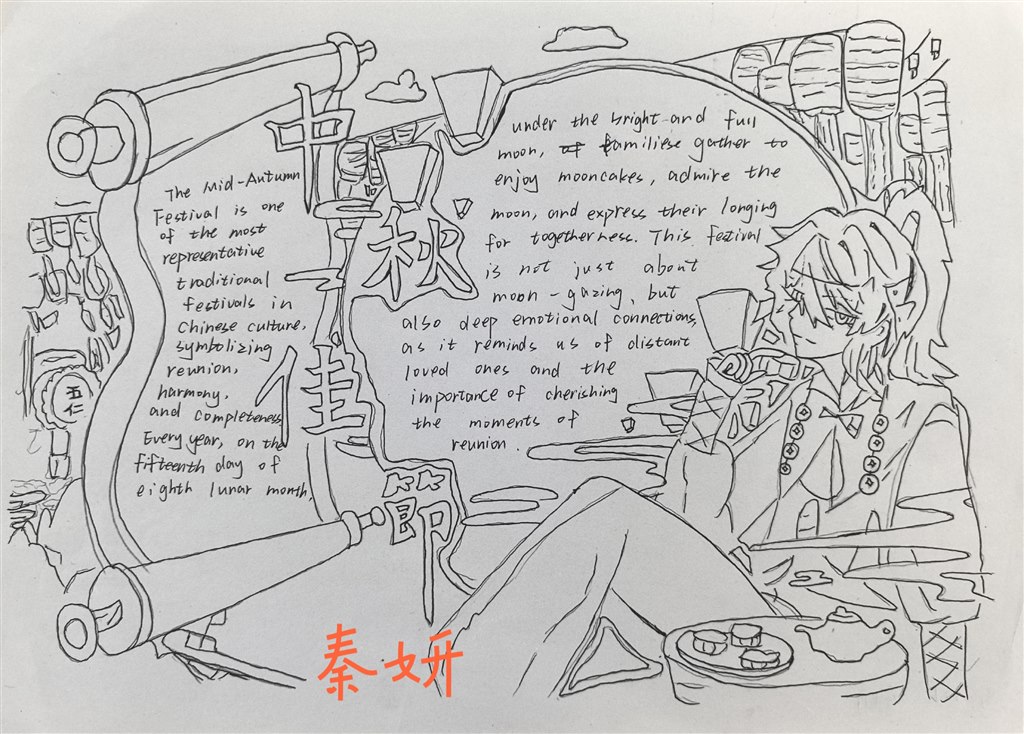 中秋佳節
The Mid-Autumn
Festival is one
of the most
representative
traditional
festivals in
Chinese culture,
symbolizing
reunion,
harmony,
and completeness
Every year, on the
fifteenth day of
eighth lunar month,
under the bright and full
moon, familiese gather to
enjoy mooncakes, admire the
moon, and express their longing
for togetherness. This festival
is not just about
moon-gazing, but
also deep emotional connections,
as it reminds us of distant
loved ones and the
importance of cherishing
the moments of
reunion.
五仁
秦妍